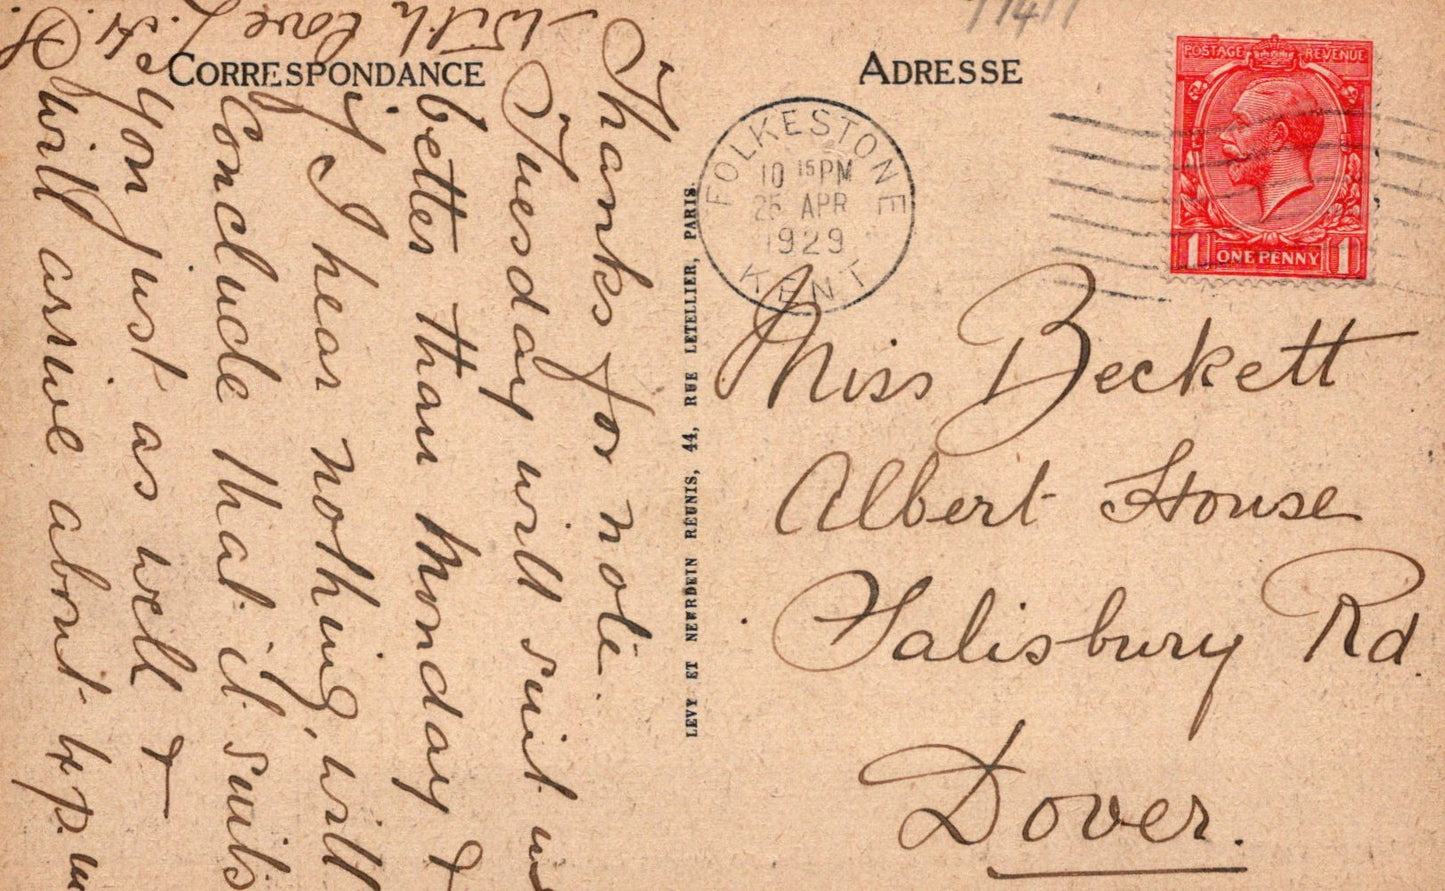 CORRESPONDANCE
Thanks for note.
Tuesday will suit me
better than Monday &
if I hear nothing, will
conclude that it suits
you just as well &
will arrive about 4 p.m.
With love
ADRESSE
FOLKESTONE
10 15 PM
25 APR
1929
KENT
POSTAGE REVENUE
1 ONE PENNY 1
Miss Beckett
Albert House
Salisbury Rd.
Dover.
LEVY ET NEURDEIN RÉUNIS, 44, RUE LETELLIER, PARIS